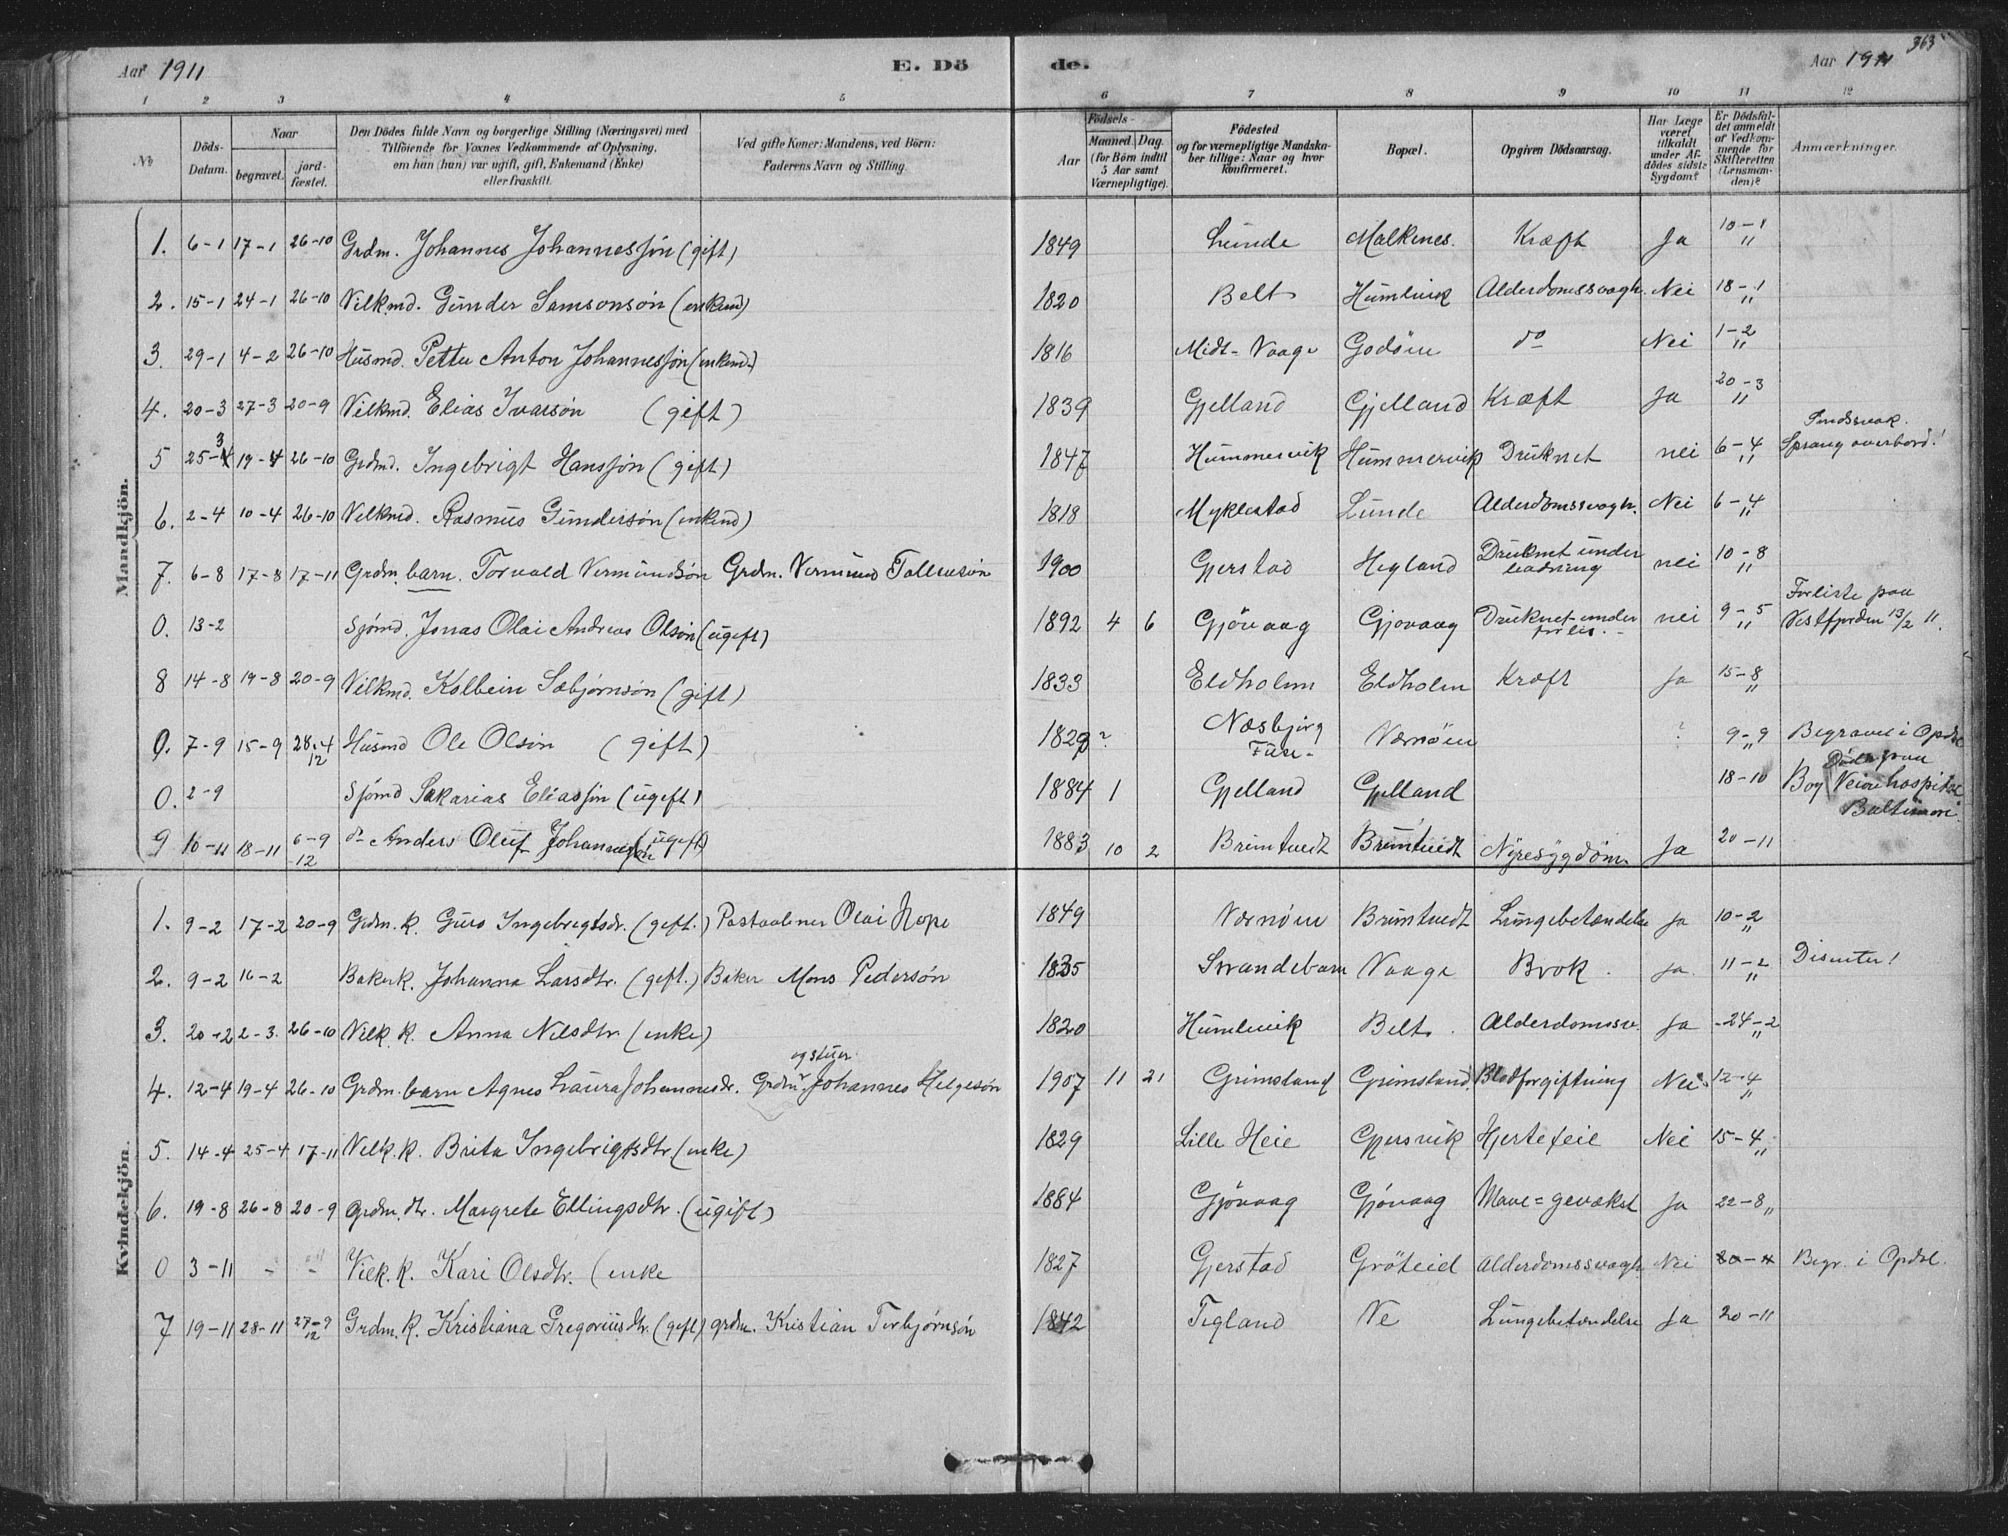 363
Aar 1911 E. Dö de. Aar 1911
1 2 3 4 5 6 7 8 9 10 11 12
No Döds-Datum. Naar begravet. jordfæstet. Den Dödes fulde Navn og borgerlige Stilling (Næringsvei) med Tilföiende for Voxnes Vedkommende af Oplysning, om han (hun) var ugift, gift, Enkemand (Enke) eller fraskilt. Ved gifte Koner: Mandens, ved Börn: Faderens Navn og Stilling. Födsels- Aar Maaned. Dag. (for Börn indtil 5 Aar samt Værnepligtige). Födested og for værnepligtige Mandskaber tillige: Naar og hvor konfirmeret. Bopæl. Opgiven Dödsaarsag. Har Læge været tilkaldt under Afdödes sidste Sygdom? Er Dödsfaldet anmeldt af Vedkommende for Skifteretten (Lensmanden)? Anmærkninger.
Mandkjön.
1. 6-1 17-1 26-10 Grdm. Johannes Johannessøn (gift) 1849 Lunde Malkenes. Kræft Ja 10-1 "
2. 15-1 24-1 26-10 Vilkmd. Gunder Samsonsøn (enkmd) 1820 Belt Humlevik Alderdomssvagh. Nei 18-1 "
3. 29-1 4-2 26-10 Husmd. Petter Anton Johannessøn (enkmd.) 1816 Midt-Vaage Godøen do Nei 1-2 "
4. 20-3 27-3 20-9 Vilkmd. Elias Ivarsøn (gift) 1839 Gjelland Gjelland Kræft Ja 20-3 "
5 25-3 19-4 26-10 Grdmd. Ingebrigt Hanssøn (gift) 1847 Hummervik Hummervik Druknet nei 6-4 " Sindssvak. Sprang overbord!
6. 2-4 10-4 26-10 Vilkmd. Rasmus Gundersøn (enkmd) 1818 Myklestad Lunde Alderdomssvagh. Nei 6-4 "
7. 6-8 17-8 17-11 Grdm. barn. Torvald Vermundsøn Grdm. Vermund Tollevsøn 1900 Gjerstad Hegland Druknet under badning nei 10-8 "
0. 13-2 Sjømd. Jonas Olai Andreas Olsøn (ugift) 1892 4 6 Gjøvaag Gjøvaag Druknet under forlis. nei 9-5 " Forliste paa Vestfjorden 13/2 11.
8 14-8 19-8 20-9 Vilkmd. Kolbein Sæbjørnsøn (gift) 1833 Eldholm Eldholm Kræft Ja 15-8 "
0. 7-9 15-9 28-4 12 Husmd Ole Olsøn (gift) 1829 ? Næsbjørg Fuse Nernøen ? 9-9 " Begravet i Opdal
0. 2-9 Sjømd Sakarias Eliassøn (ugift) 1884 1 Gjelland Gjelland 18-10 Døde paa Bay View hospital Baltimore.
9 10-11 18-11 6-9 -12 do Anders Oluf Johannessøn (ugift) 1883 10 2 Bruntvedt Bruntvedt Nyresygdom. Ja 20-11
Kvindekjön.
1. 9-2 17-2 20-9 Grdm. k. Guro Ingebrigtsdr. (gift.) Postaabner Olai Hope 1849 Nernøen Bruntvedt Lungebetændelse Ja 10-2 "
2. 9-2 16-2 Baker k. Johanna Larsdtr. (gift.) Baker Mons Pedersøn 1835 Strandebarm Vaage Brok. Ja 11-2 " Disenter!
3. 20-2 2-3. 26-10 Vilk. k. Anna Nilsdtr (enke) 1820 Humlevik Belt. Alderdomssv. Ja -24-2 "
4. 12-4 19-4 26-10 Grdm. barn Agnes Laura Johannesdr. Grdm. og stuer Johannes Helgesøn 1907 11 21 Grimsland Grimsland Blodforgiftning Nei 12-4 "
5. 14-4 25-4 17-11 Vilk. k. Brita Ingebrigtsdtr (enke) 1829 Lille Heie Gjersvik Hjertefeil Nei 15-4 "
6. 19-8 26-8 20-9 Grdm. dtr. Margrete Ellingsdtr. (ugift) 1884 Gjøvaag Gjøvaag Mave=gevækst Ja 22-8 "
0 3-11 - - Vilk. k. Kari Olsdtr. (enke 1827 Gjerstad Grøteid Alderdomssvagh. Nei Begr. i Opdal.
7 19-11 28-11 27-9 12 Grdm. k. Kristiana Gregoriusdtr (gift) grdm. Kristian Torbjørnsøn 1842 Tegland Ne Lungebetændelse Ja 20-11